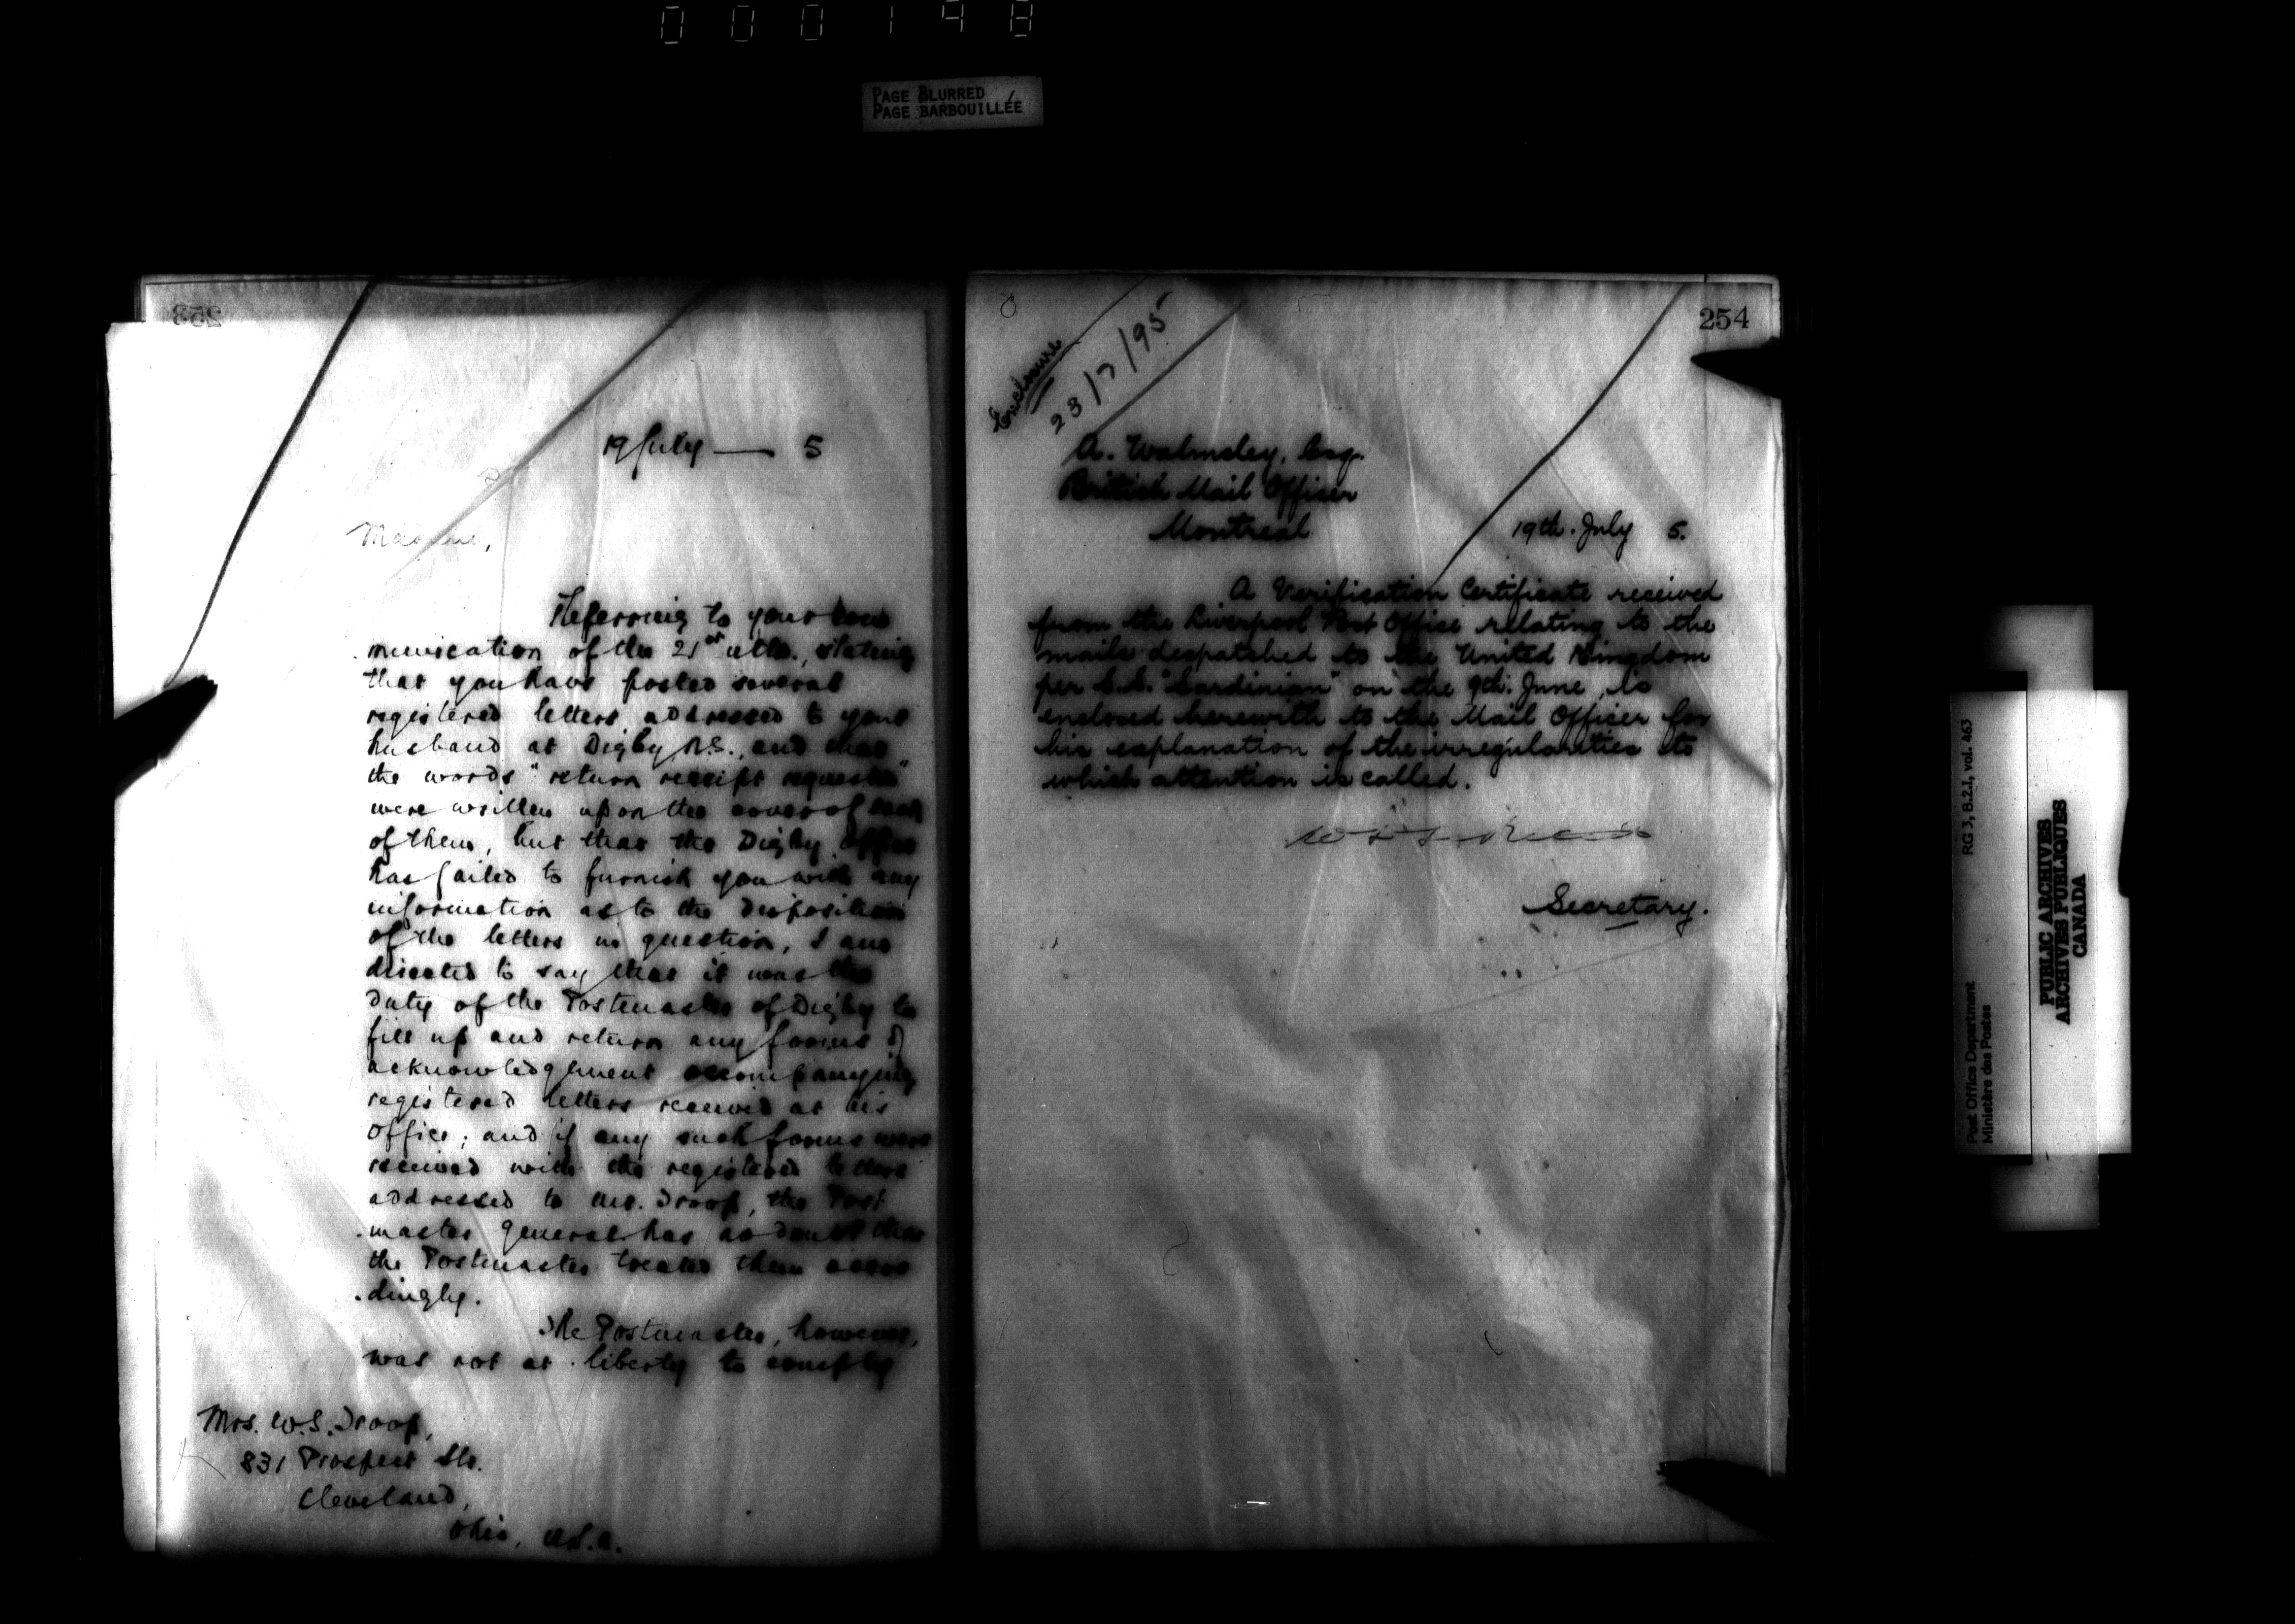 000148
PAGE BLURRED
PAGE BARBOUILLÉE
253
19 July — 5
Madame,
Referring to your com
munication of the 21st ulto., stating
that you have posted several
registered letters addressed to your
husband at Digby, N.S., and that
the words "return receipt requested"
were written upon the cover of each
of them, but that the Digby office
has failed to furnish you with any
information as to the disposition
of the letters in question, I am
directed to say that it was the
duty of the Postmaster of Digby to
fill up and return any forms of
acknowledgement accompanying
registered letters received at his
office; and if any such forms were
received with the registered letters
addressed to Mr. Troop, the Post
master General has no doubt that
the Postmaster treated them accor
dingly.
The Postmaster, however,
was not at liberty to comply
Mrs. W.S. Troop,
831 Prospect Str.
Cleveland,
Ohio, U.S.A.
254
Enclosure
23/7/95
A. Walmsley, Esq.
British Mail Officer
Montreal
19th. July 5.
A Verification Certificate received
from the Liverpool Post Office relating to the
mails despatched to the United Kingdom
per S.S. "Sardinian" on the 9th. June, is
enclosed herewith to the Mail Officer for
his explanation of the irregularities to
which attention is called.
Secretary.
RG 3, B.2.1, vol. 463
Post Office Department
Ministère des Postes
PUBLIC ARCHIVES
ARCHIVES PUBLIQUES
CANADA